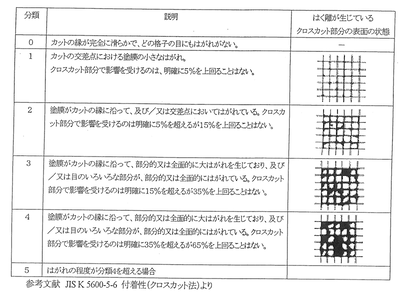 分類
説明
はく離が生じている
クロスカット部分の表面の状態
0
カットの縁が完全に滑らかで、どの格子の目にもはがれがない。
―
1
カットの交差点における塗膜の小さなはがれ。
クロスカット部分で影響を受けるのは、明確に5%を上回ることはない。
2
塗膜がカットの縁に沿って、及び／又は交差点においてはがれている。クロスカ
ット部分で影響を受けるのは明確に5%を超えるが15%を上回ることはない。
3
塗膜がカットの縁に沿って、部分的又は全面的に大はがれを生じており、及び
／又は目のいろいろな部分が、部分的又は全面的にはがれている。クロスカット
部分で影響を受けるのは明確に15%を超えるが35%を上回ることはない。
4
塗膜がカットの縁に沿って、部分的又は全面的に大はがれを生じており、及び
／又は目のいろいろな部分が、部分的又は全面的にはがれている。クロスカット
部分で影響を受けるのは明確に35%を超えるが65%を上回ることはない。
5
はがれの程度が分類4を超える場合
参考文献 JIS K 5600-5-6 付着性(クロスカット法)より